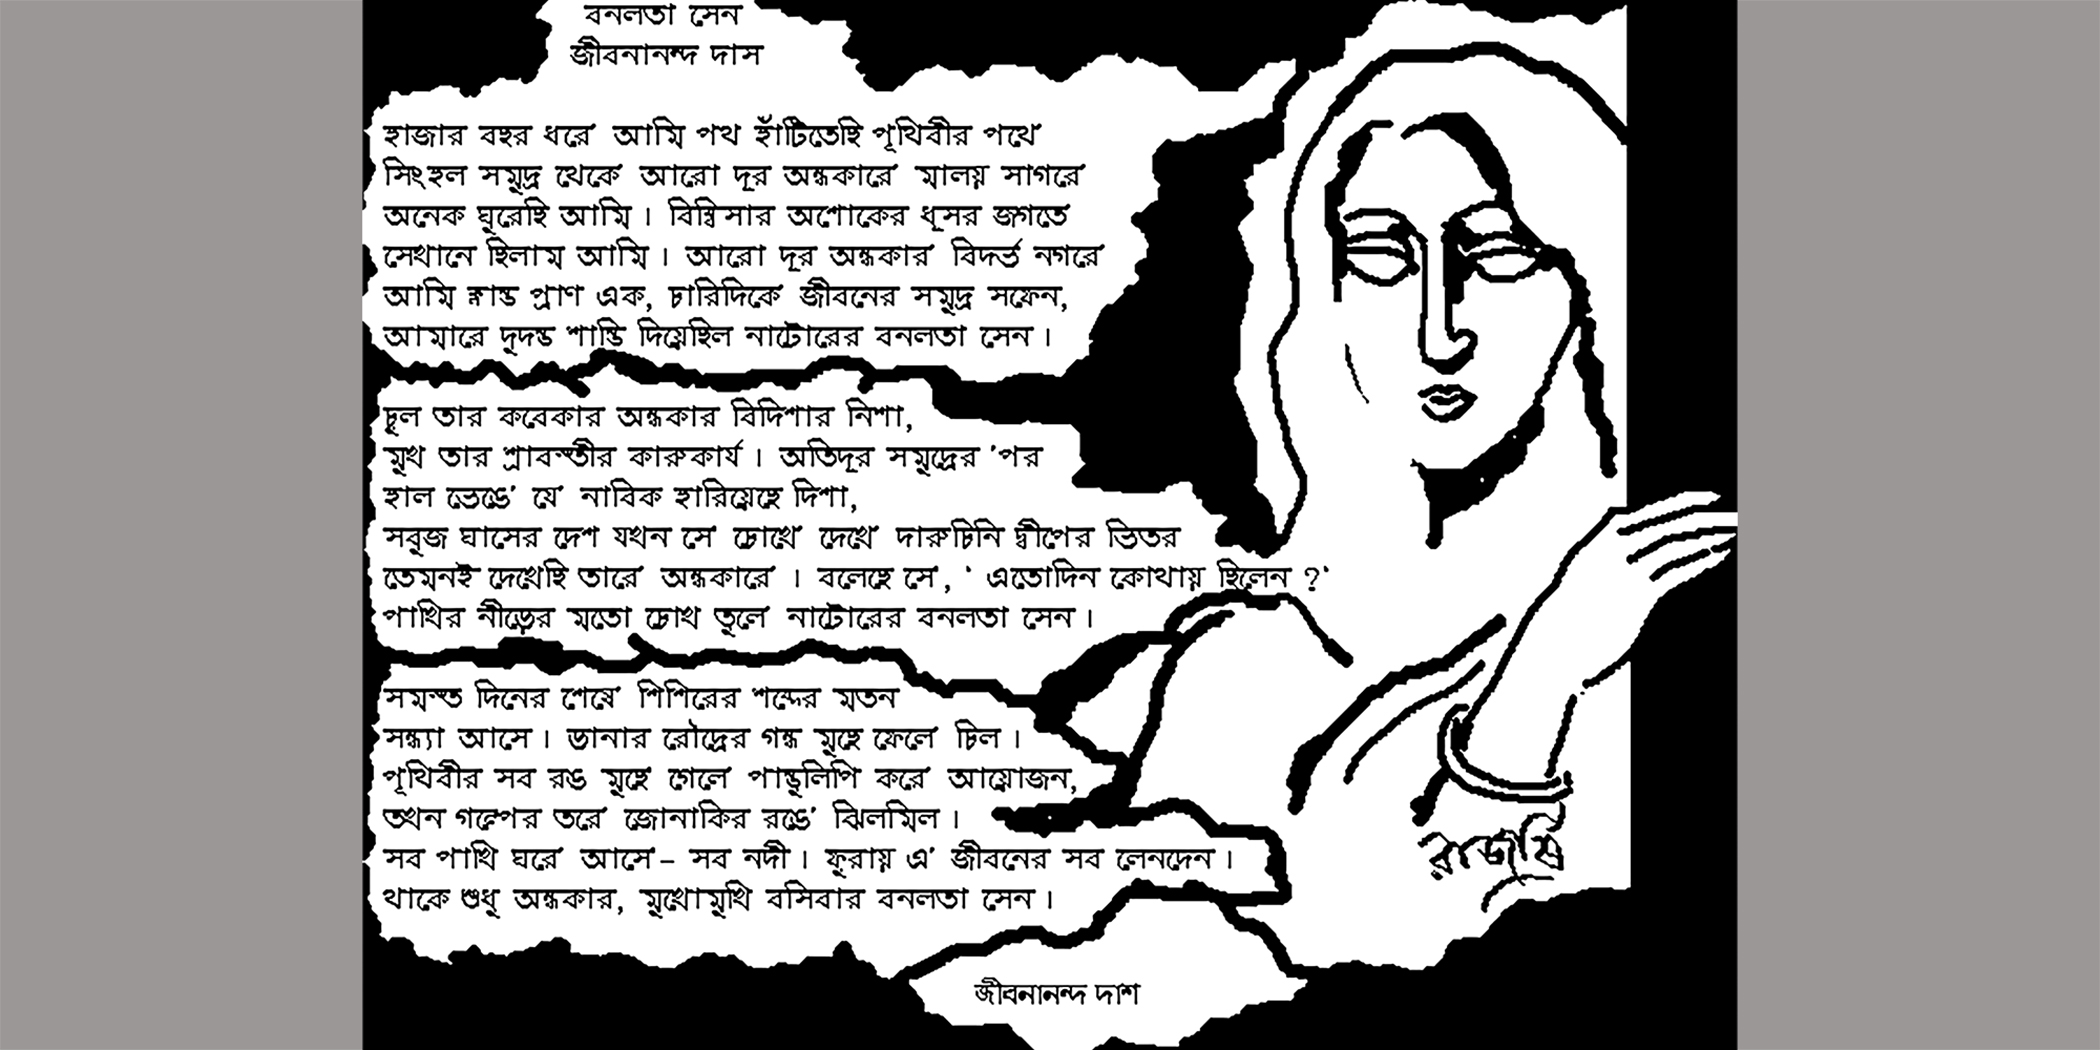 বনলতা সেন
জীবনানন্দ দাস
হাজার বছর ধরে' আমি পথ হাঁটিতেছি পৃথিবীর পথে'
সিংহল সমুদ্র থেকে' আরো দূর অন্ধকারে' মালয় সাগরে'
অনেক ঘুরেছি আমি। বিম্বিসার অশোকের ধূসর জগতে'
সেখানে ছিলাম আমি। আরো দূর অন্ধকার' বিদর্ভ নগরে'
আমি ক্লান্ত প্রাণ এক, চারিদিকে' জীবনের সমুদ্র সফেন,
আমারে দুদন্ড শান্তি দিয়েছিল নাটোরের বনলতা সেন।
চুল তার কবেকার অন্ধকার বিদিশার নিশা,
মুখ তার শ্রাবস্তীর কারুকার্য। অতিদূর সমুদ্রের 'পর
হাল ভেঙে' যে' নাবিক হারিয়েছে দিশা,
সবুজ ঘাসের দেশ যখন সে' চোখে' দেখে' দারুচিনি দ্বীপের ভিতর
তেমনই দেখেছি তারে' অন্ধকারে'। বলেছে সে', ' এতোদিন কোথায় ছিলেন ?'
পাখির নীড়ের মতো চোখ তুলে' নাটোরের বনলতা সেন।
সমস্ত দিনের শেষে' শিশিরের শব্দের মতন
সন্ধ্যা আসে। ডানার রৌদ্রের গন্ধ মুছে ফেলে' চিল।
পৃথিবীর সব রঙ মুছে' গেলে' পান্ডুলিপি করে' আয়োজন,
তখন গল্পের তরে' জোনাকির রঙে' ঝিলমিল।
সব পাখি ঘরে' আসে'– সব নদী। ফুরায় এ' জীবনের' সব লেনদেন।
থাকে শুধু অন্ধকার, মুখোমুখি বসিবার বনলতা সেন।
রাজর্ষি
জীবনানন্দ দাশ